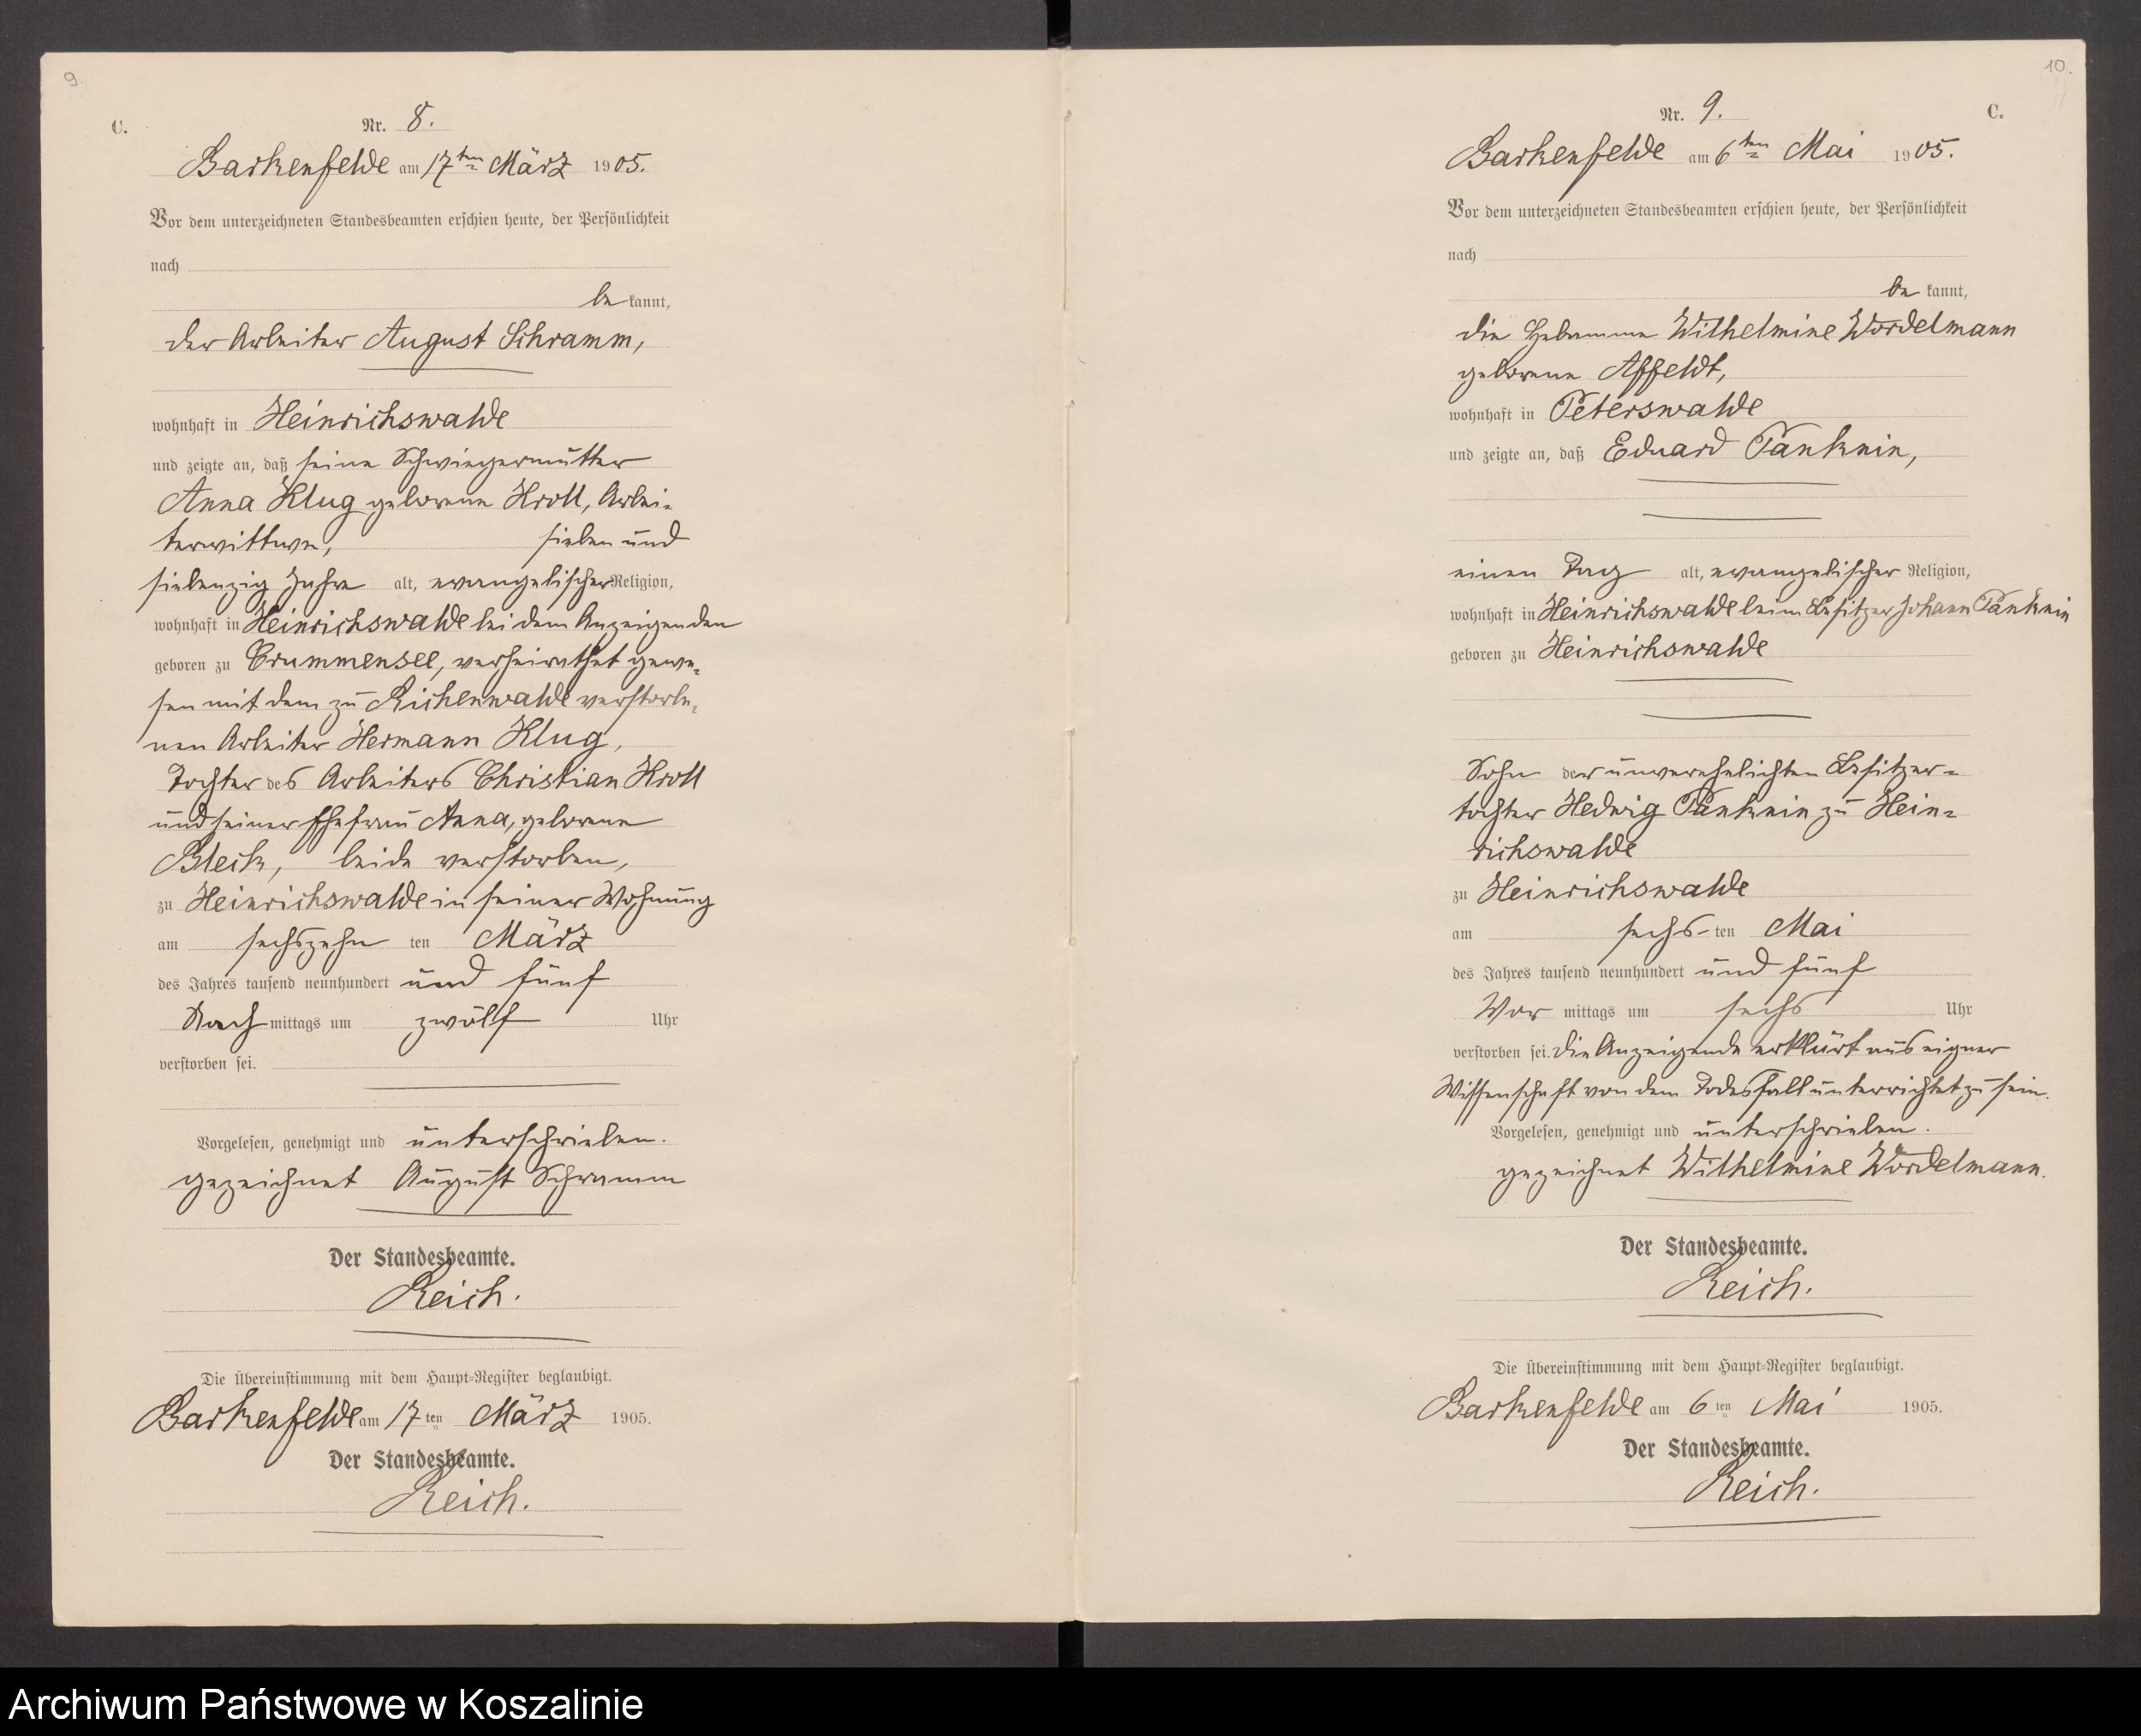 9
C.
Nr. 8.
Barkenfelde am 17ten März 1905.
Vor dem unterzeichneten Standesbeamten erschien heute, der Persönlichkeit
nach
be kannt,
der Arbeiter August Schramm,
wohnhaft in Heinrichswalde
und zeigte an, daß seine Schwiegermutter
Anna Klug geborene Kroll, Arbei-
terwittwe, sieben und
siebenzig Jahre alt, evangelischer Religion,
wohnhaft in Heinrichswalde bei dem Anzeigenden
geboren zu Crummensee, verheirathet gewe-
sen mit dem zu Eichenwalde verstorbe-
nen Arbeiter Hermann Klug,
Tochter des Arbeiters Christian Kroll
und seiner Ehefrau Anna, geborene
Bleck, beide verstorben,
zu Heinrichswalde in seiner Wohnung
am sechszehn ten März
des Jahres tausend neunhundert und fünf
Nach mittags um zwölf Uhr
verstorben sei.
Vorgelesen, genehmigt und unterschrieben.
gezeichnet August Schramm
Der Standesbeamte.
Reich.
Die Übereinstimmung mit dem Haupt-Register beglaubigt.
Barkenfelde am 17 ten März 1905.
Der Standesbeamte.
Reich.
10.
Nr. 9.
C.
Barkenfelde am 6ten Mai 1905.
Vor dem unterzeichneten Standesbeamten erschien heute, der Persönlichkeit
nach
be kannt,
die Hebamme Wilhelmine Wordelmann
geborene Affeldt,
wohnhaft in Peterswalde
und zeigte an, daß Eduard Panknin,
einen Tag alt, evangelischer Religion,
wohnhaft in Heinrichswalde beim Besitzer Johann Panknin
geboren zu Heinrichswalde
Sohn der unverehelichten Besitzer-
tochter Hedwig Panknin zu Hein-
richswalde
zu Heinrichswalde
am sechs- ten Mai
des Jahres tausend neunhundert und fünf
Vor mittags um sechs Uhr
verstorben sei. Die Anzeigende erklärt aus eigner
Wissenschaft von dem Todesfall unterrichtet zu sein.
Vorgelesen, genehmigt und unterschrieben.
gezeichnet Wilhelmine Wordelmann.
Der Standesbeamte.
Reich.
Die Übereinstimmung mit dem Haupt-Register beglaubigt.
Barkenfelde am 6 ten Mai 1905.
Der Standesbeamte.
Reich.
Archiwum Państwowe w Koszalinie